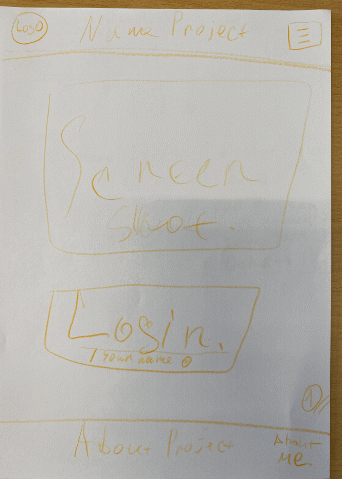 LOGO
Name Project
Screen
Shot.
Login.
Your name
1
About Project
About
Me